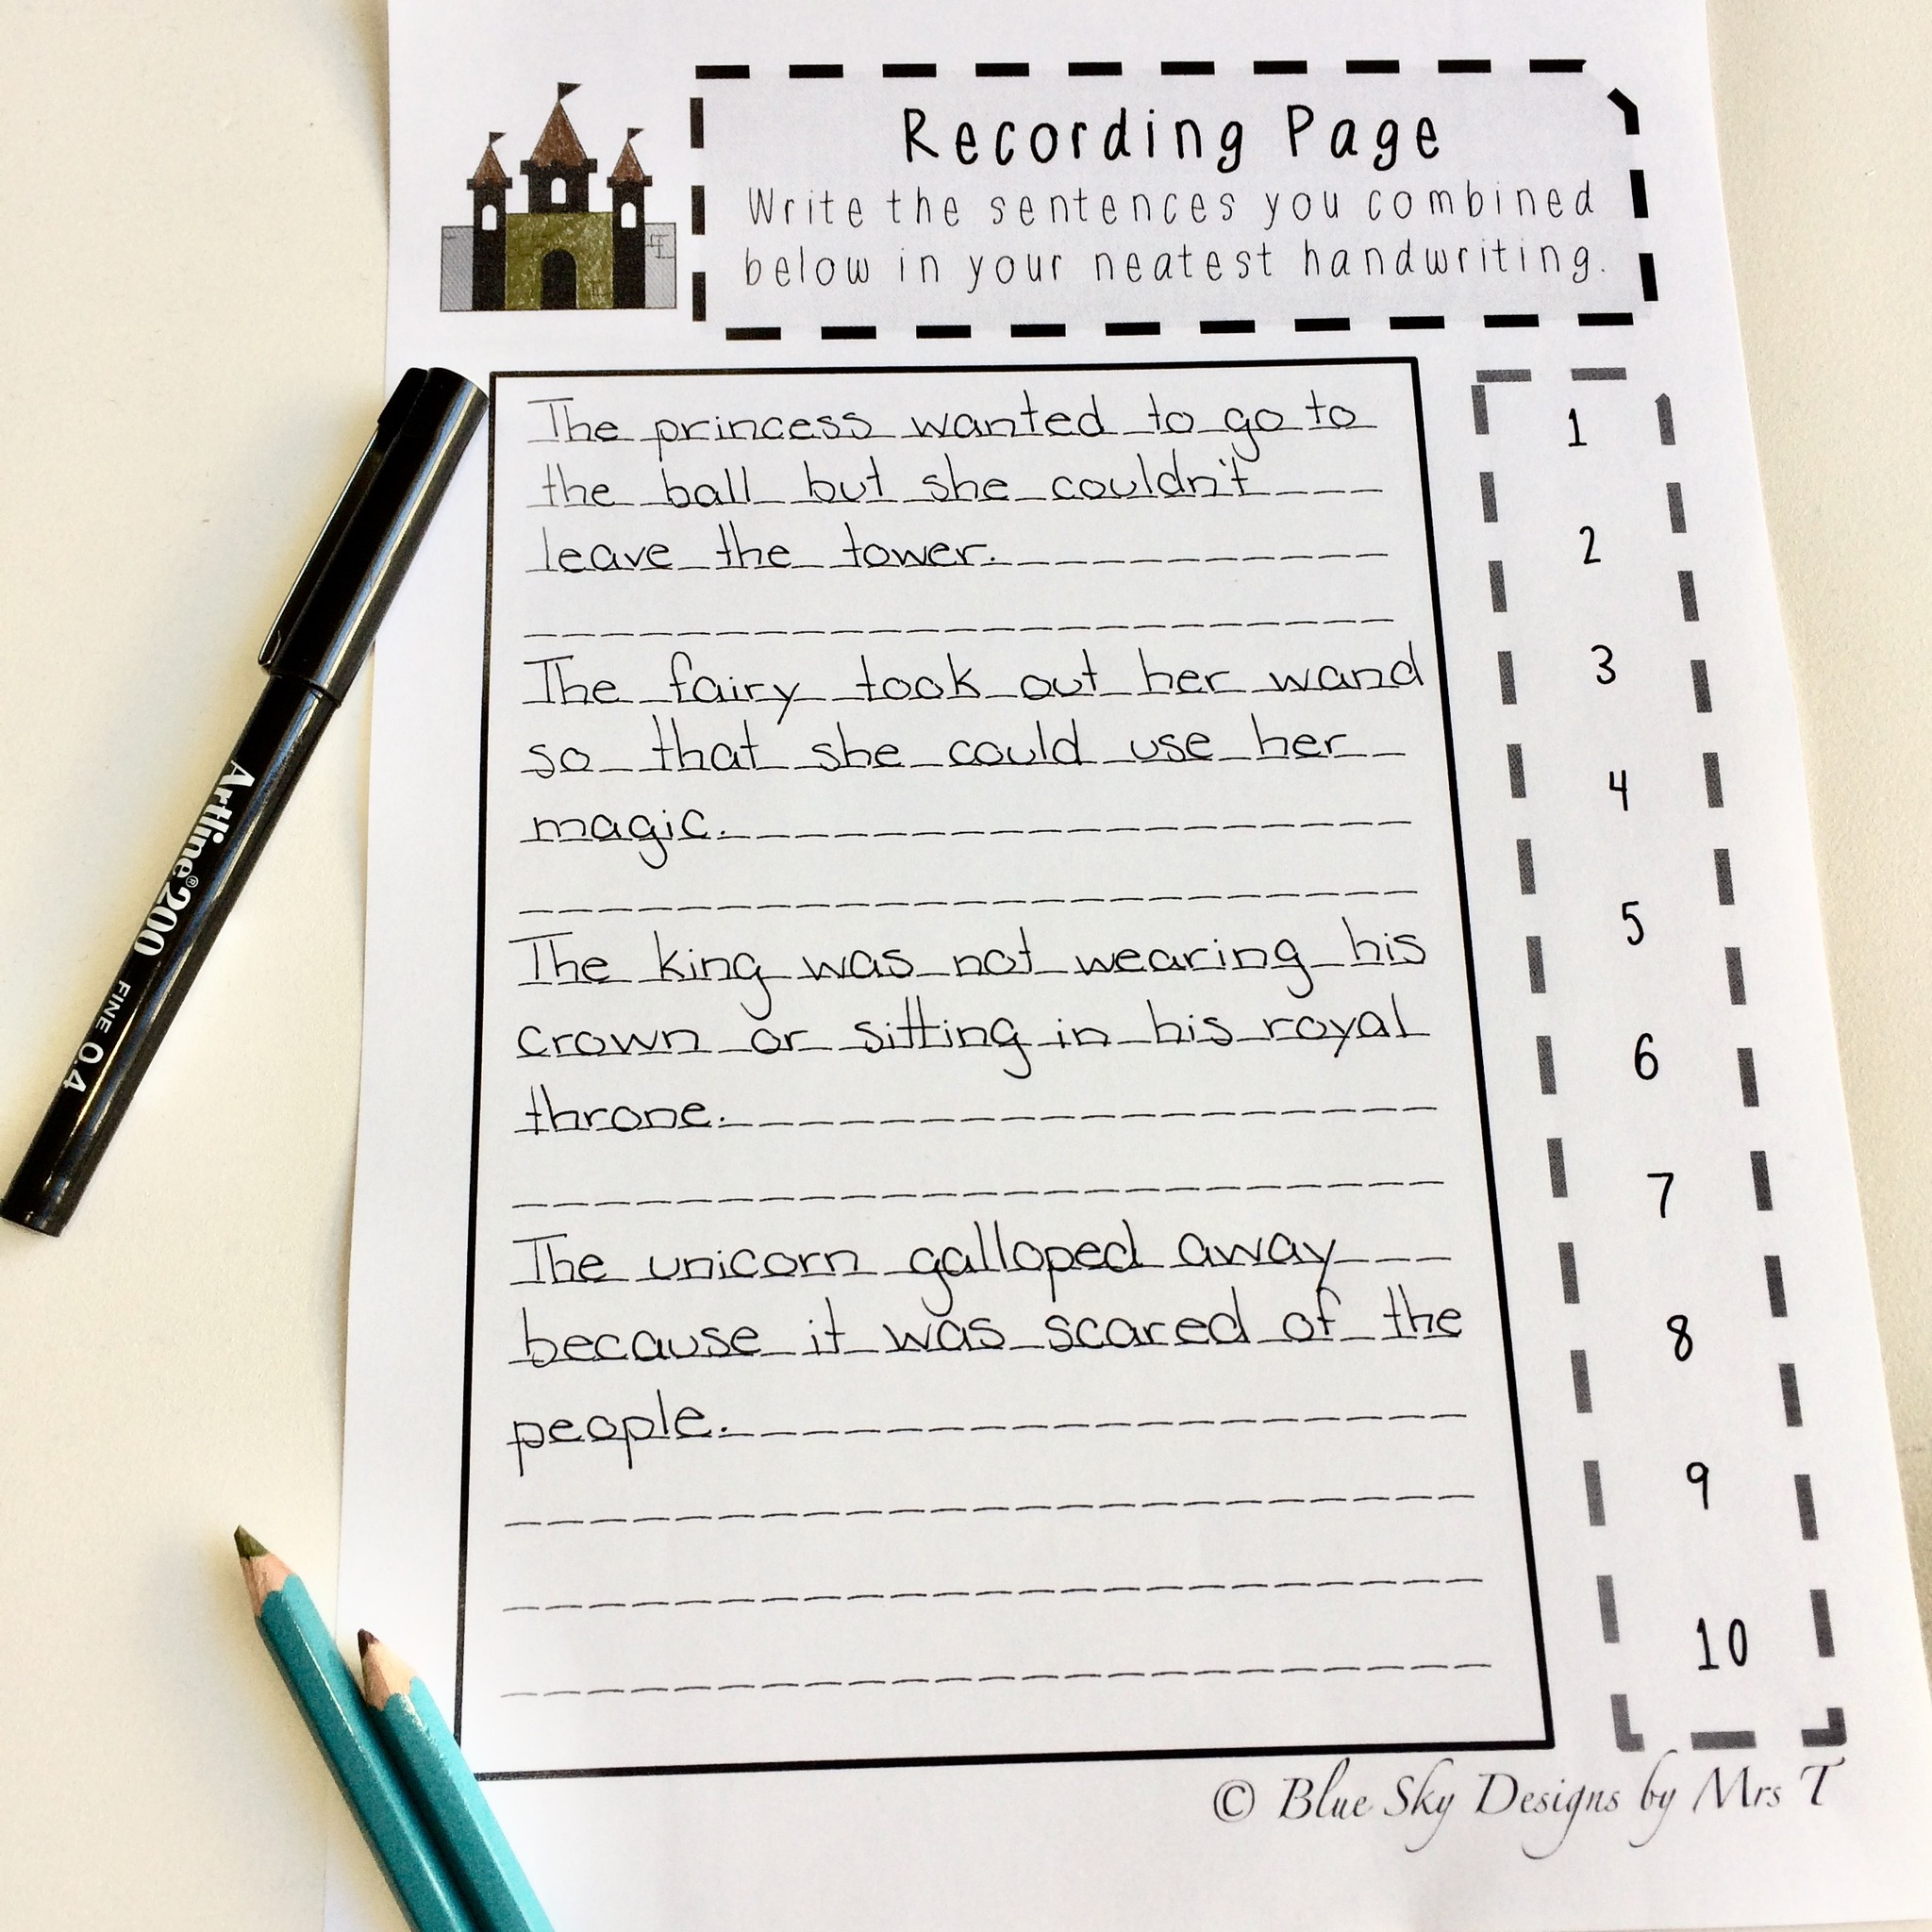 Recording Page
Write the sentences you combined
below in your neatest handwriting.
The princess wanted to go to
the ball but she couldn't
leave the tower.
The fairy took out her wand
so that she could use her
magic.
The king was not wearing his
crown or sitting in his royal
throne.
The unicorn galloped away
because it was scared of the
people.
1
2
3
4
5
6
7
8
9
10
© Blue Sky Designs by Mrs T
Artline®200 FINE 0.4